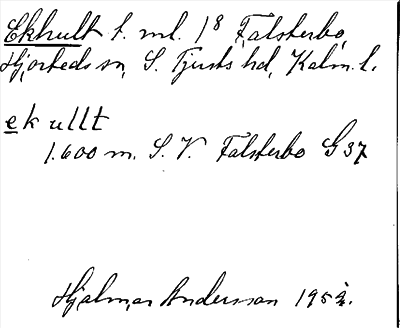 Ekhult t. ml. 1⁸ Falsterbo,
Hjorteds sn, S. Tjusts hd, Kalm. l.
ekullt
1.600 m. S. V. Falsterbo G 37
Hjalmar Andersson 1952.